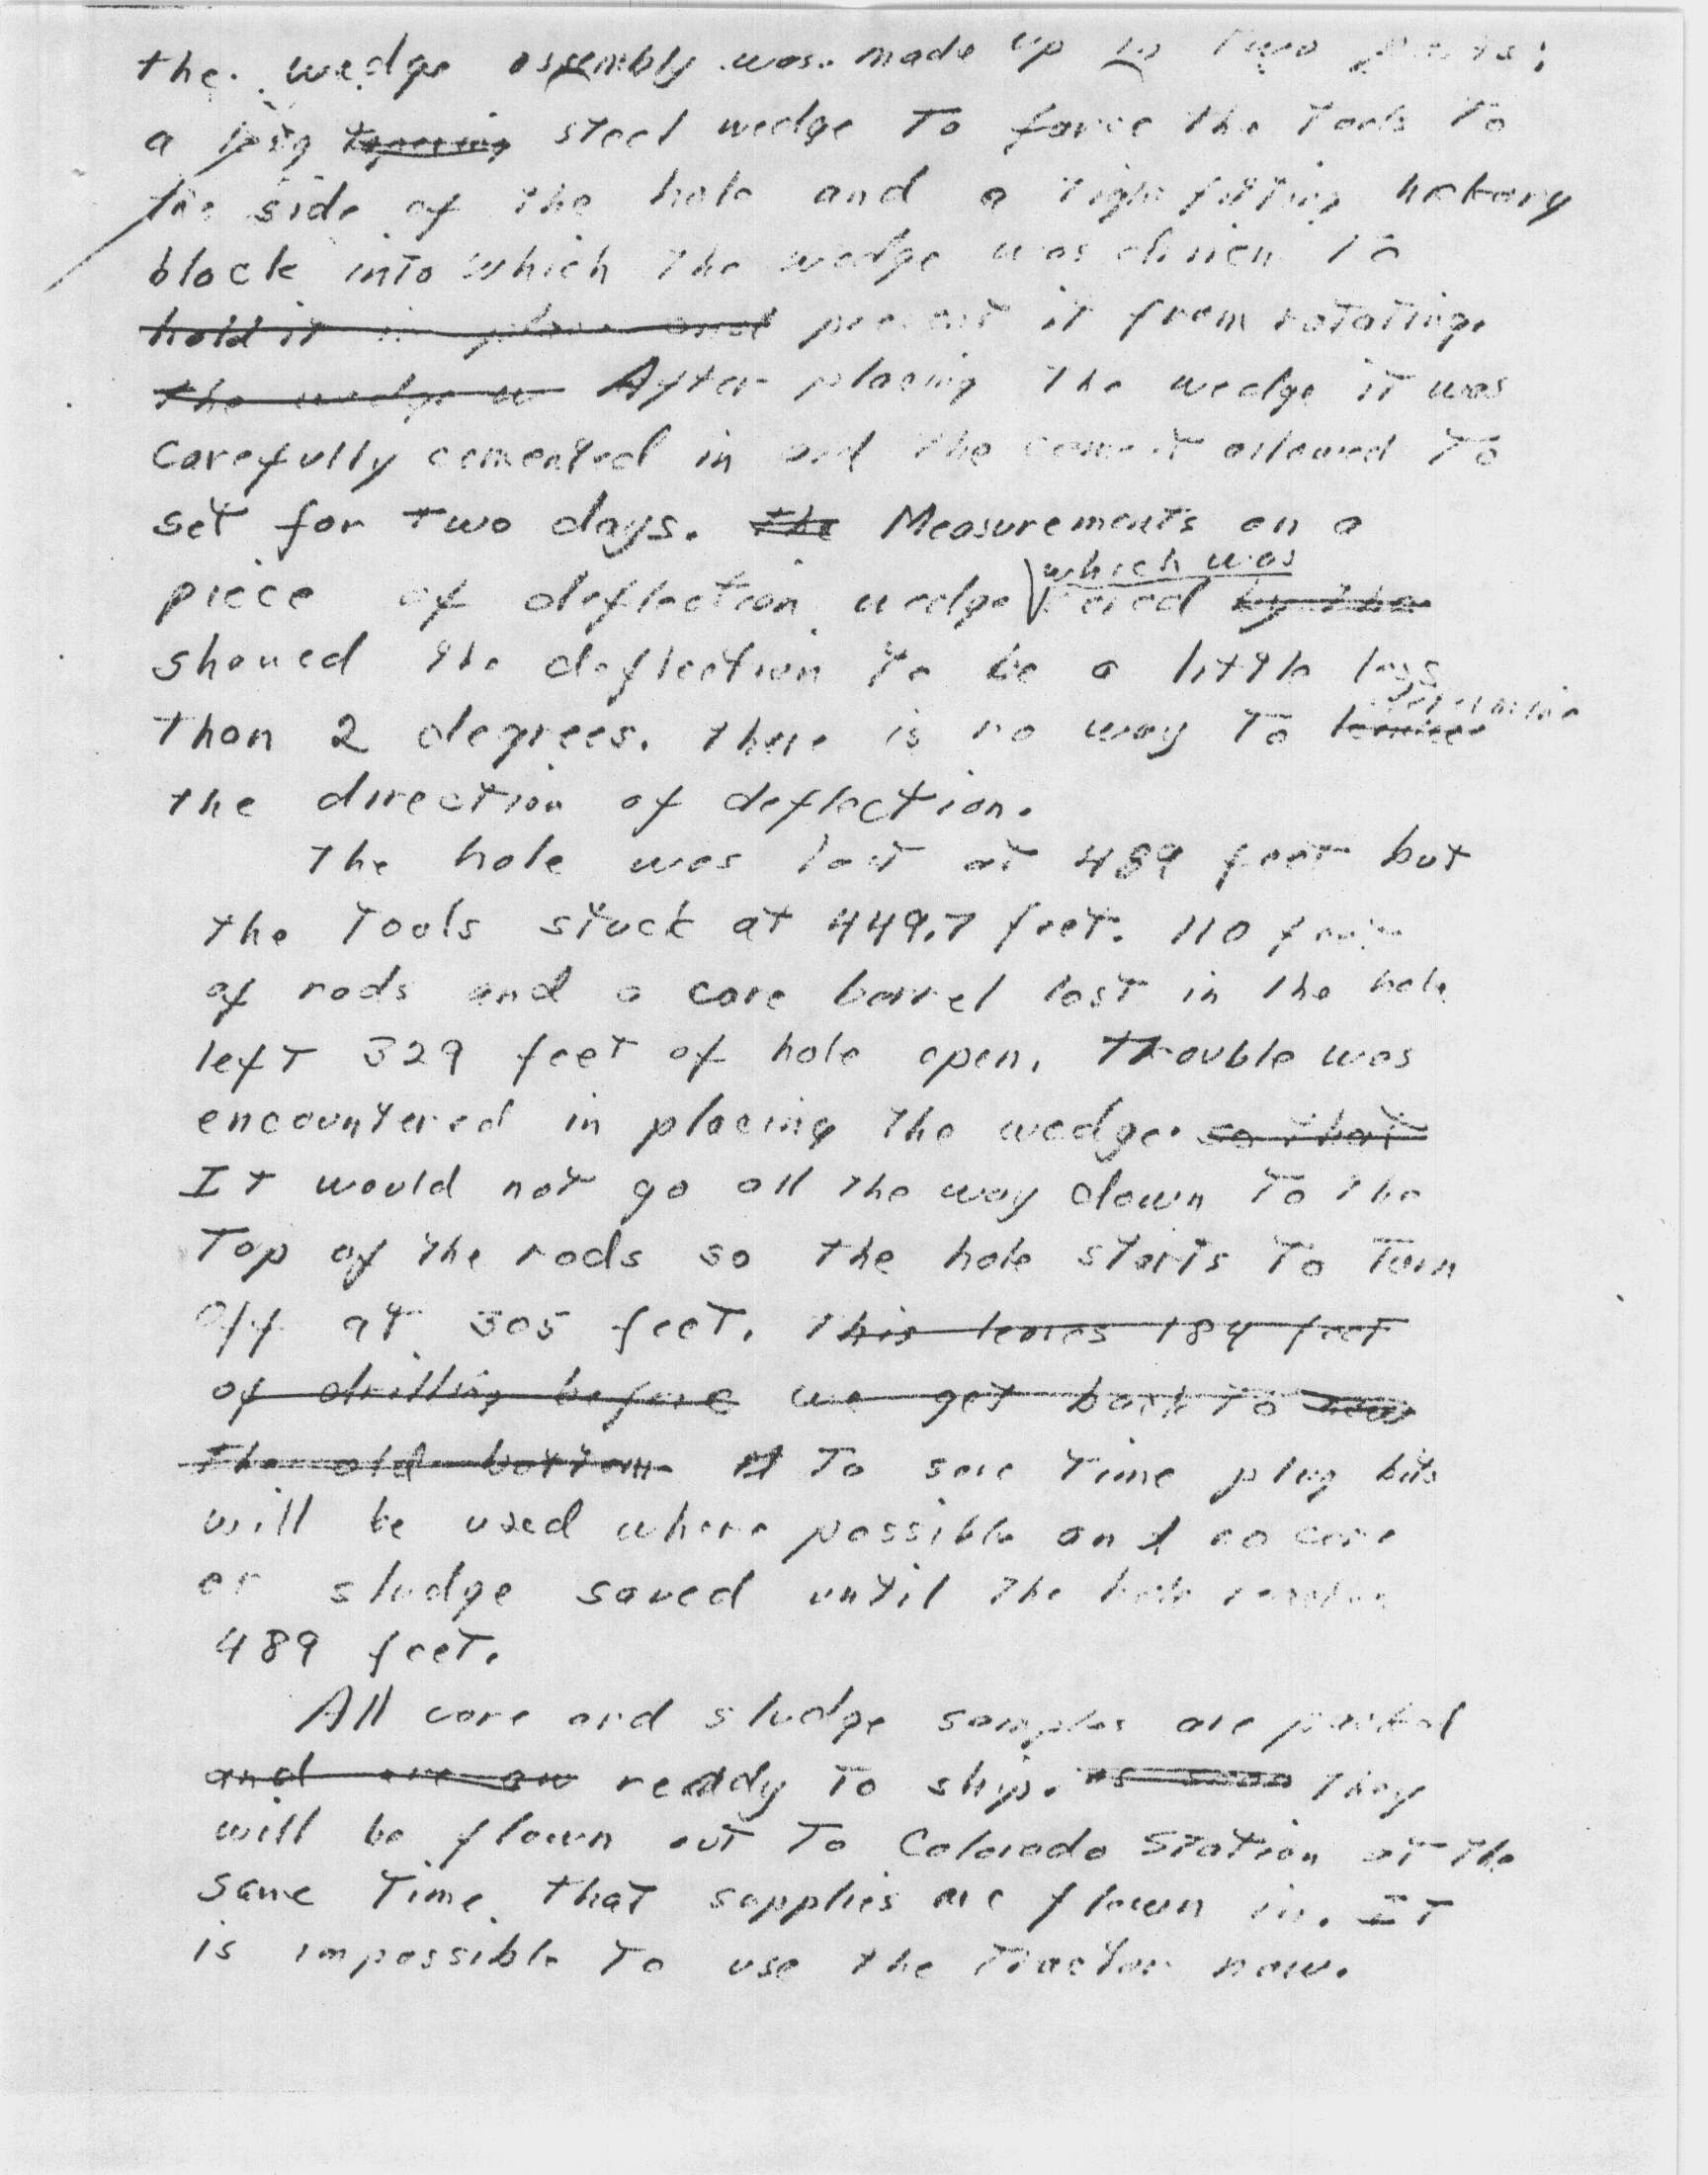 the wedge assembly was made up in two parts;
a long tapering steel wedge to force the tools to
the side of the hole and a tight fitting hickory
block into which the wedge was driven to
hold it in place and prevent it from rotating.
the wedge w After placing the wedge it was
carefully cemented in and the cement allowed to
set for two days. the Measurements on a
which was
piece of deflection wedge cored by the
showed the deflection to be a little less
determine
than 2 degrees. there is no way to
the direction of deflection.
The hole was lost at 489 feet but
the tools stuck at 449.7 feet. 110 feet
of rods and a core barrel lost in the hole
left 329 feet of hole open. Trouble was
encountered in placing the wedge. so that
It would not go all the way down to the
Top of the rods so the hole starts to turn
off at 305 feet. This leaves 184 feet
of drilling before we get back to new
the old bottom To save time plug bits
will be used where possible and no core
or sludge saved until the hole reaches
489 feet.
All core and sludge samples are packed
and are ready to ship. as soon They
will be flown out to Colorado Station at the
same time that supplies are flown in. It
is impossible to use the tractor now.